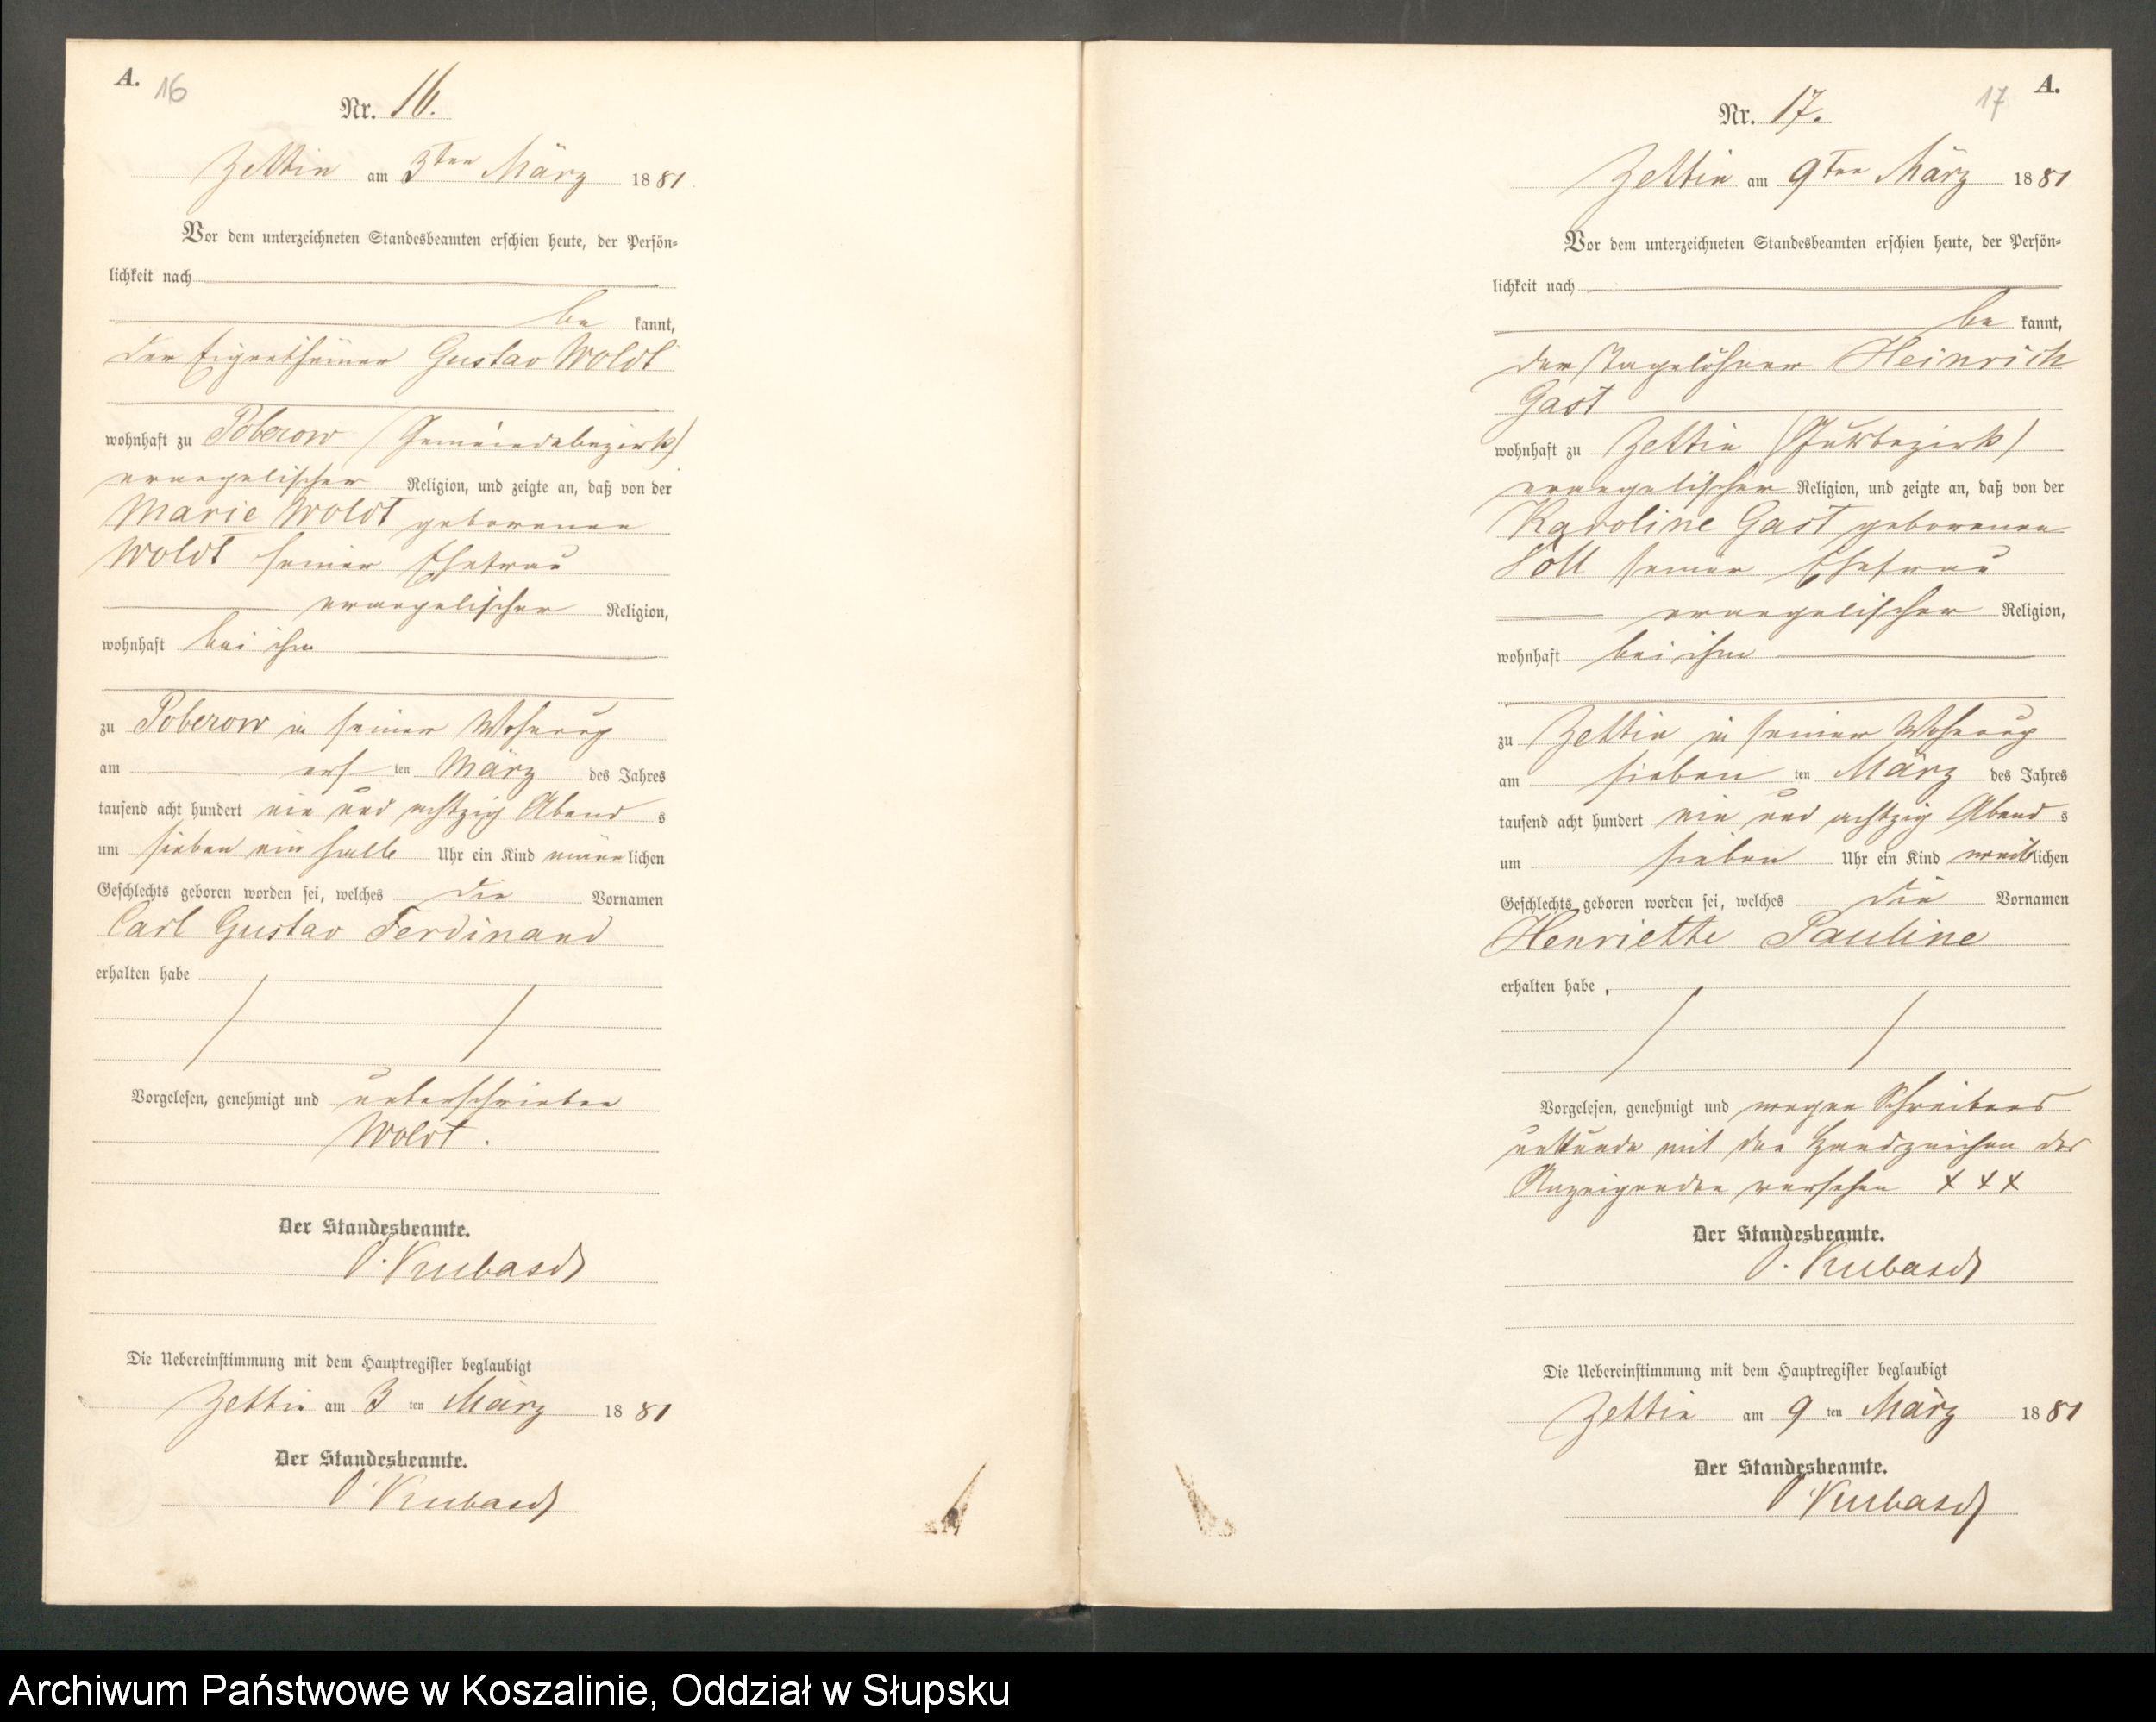 A.
16
Nr. 16.
Zettin am 3ten März 1881
Vor dem unterzeichneten Standesbeamten erschien heute, der Persön-
lichkeit nach
be kannt,
der Eigenthümer Gustav Woldt
wohnhaft zu Poberow (Gemeindebezirk)
evangelischer Religion, und zeigte an, daß von der
Marie Woldt geborenen
Woldt seiner Ehefrau
evangelischer Religion,
wohnhaft bei ihm
zu Poberow in seiner Wohnung
am ers ten März des Jahres
tausend acht hundert ein und achtzig Abend s
um sieben ein halb Uhr ein Kind männ lichen
Geschlechts geboren worden sei, welches die Vornamen
Carl Gustav Ferdinand
erhalten habe
Vorgelesen, genehmigt und unterschrieben
Woldt.
Der Standesbeamte.
O. Kubasch
Die Uebereinstimmung mit dem Hauptregister beglaubigt
Zettin am 3 ten März 1881
Der Standesbeamte.
O. Kubasch
A.
17
Nr. 17.
Zettin am 9ten März 1881
Vor dem unterzeichneten Standesbeamten erschien heute, der Persön-
lichkeit nach
be kannt,
der Tagelöhner Heinrich
Gast
wohnhaft zu Zettin (Gutsbezirk)
evangelischer Religion, und zeigte an, daß von der
Karoline Gast geborenen
Söll seiner Ehefrau
evangelischer Religion,
wohnhaft bei ihm
zu Zettin in seiner Wohnung
am sieben ten März des Jahres
tausend acht hundert ein und achtzig Abend s
um sieben Uhr ein Kind weib lichen
Geschlechts geboren worden sei, welches die Vornamen
Henriette Pauline
erhalten habe.
Vorgelesen, genehmigt und wegen Schreibens
unkunde mit den Handzeichen des
Anzeigenden versehen + + +
Der Standesbeamte.
O. Kubasch
Die Uebereinstimmung mit dem Hauptregister beglaubigt
Zettin am 9 ten März 1881
Der Standesbeamte.
O. Kubasch
Archiwum Państwowe w Koszalinie, Oddział w Słupsku